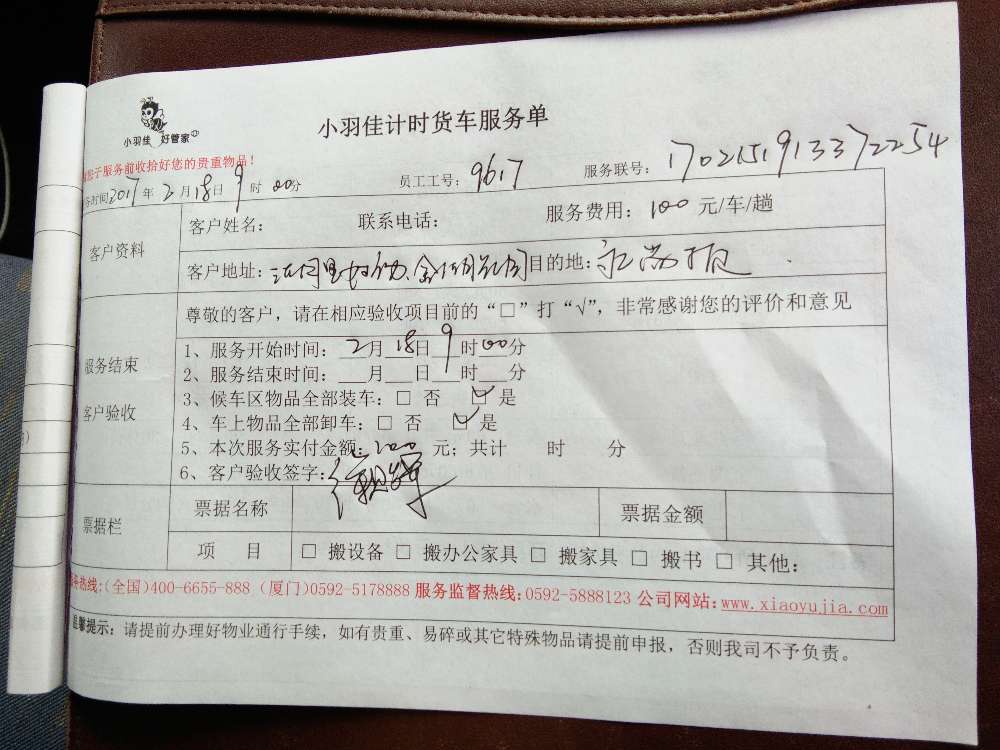 小羽佳 好管家
小羽佳计时货车服务单
于服务前收拾好您的贵重物品！
务时间2017年2月18日9时00分 员工工号：9617 服务联号：1702151913372254
客户资料
客户姓名： 联系电话： 服务费用：100元/车/趟
客户地址： 目的地：
尊敬的客户，请在相应验收项目前的“□”打“√”，非常感谢您的评价和意见
服务结束
客户验收
1、服务开始时间：2月18日9时00分
2、服务结束时间：___月___日___时___分
3、候车区物品全部装车：□ 否 ☑ 是
4、车上物品全部卸车：□ 否 ☑ 是
5、本次服务实付金额：100元；共计 时 分
6、客户验收签字：
票据栏
票据名称 票据金额
项 目 □ 搬设备 □ 搬办公家具 □ 搬家具 □ 搬书 □ 其他：
务热线:(全国)400-6655-888 (厦门)0592-5178888 服务监督热线:0592-5888123 公司网站:www.xiaoyujia.com
温馨提示：请提前办理好物业通行手续，如有贵重、易碎或其它特殊物品请提前申报，否则我司不予负责。